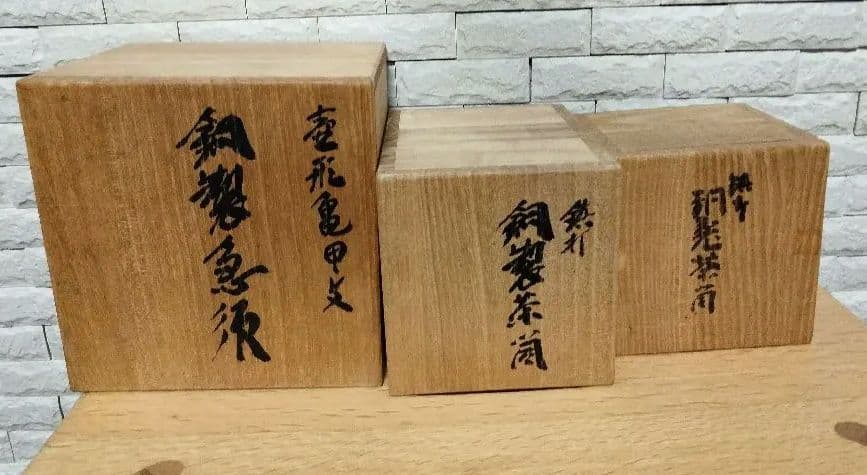 壺形亀甲文
銅製急須
鎚打
銅製茶筒
鎚打
銅製茶筒